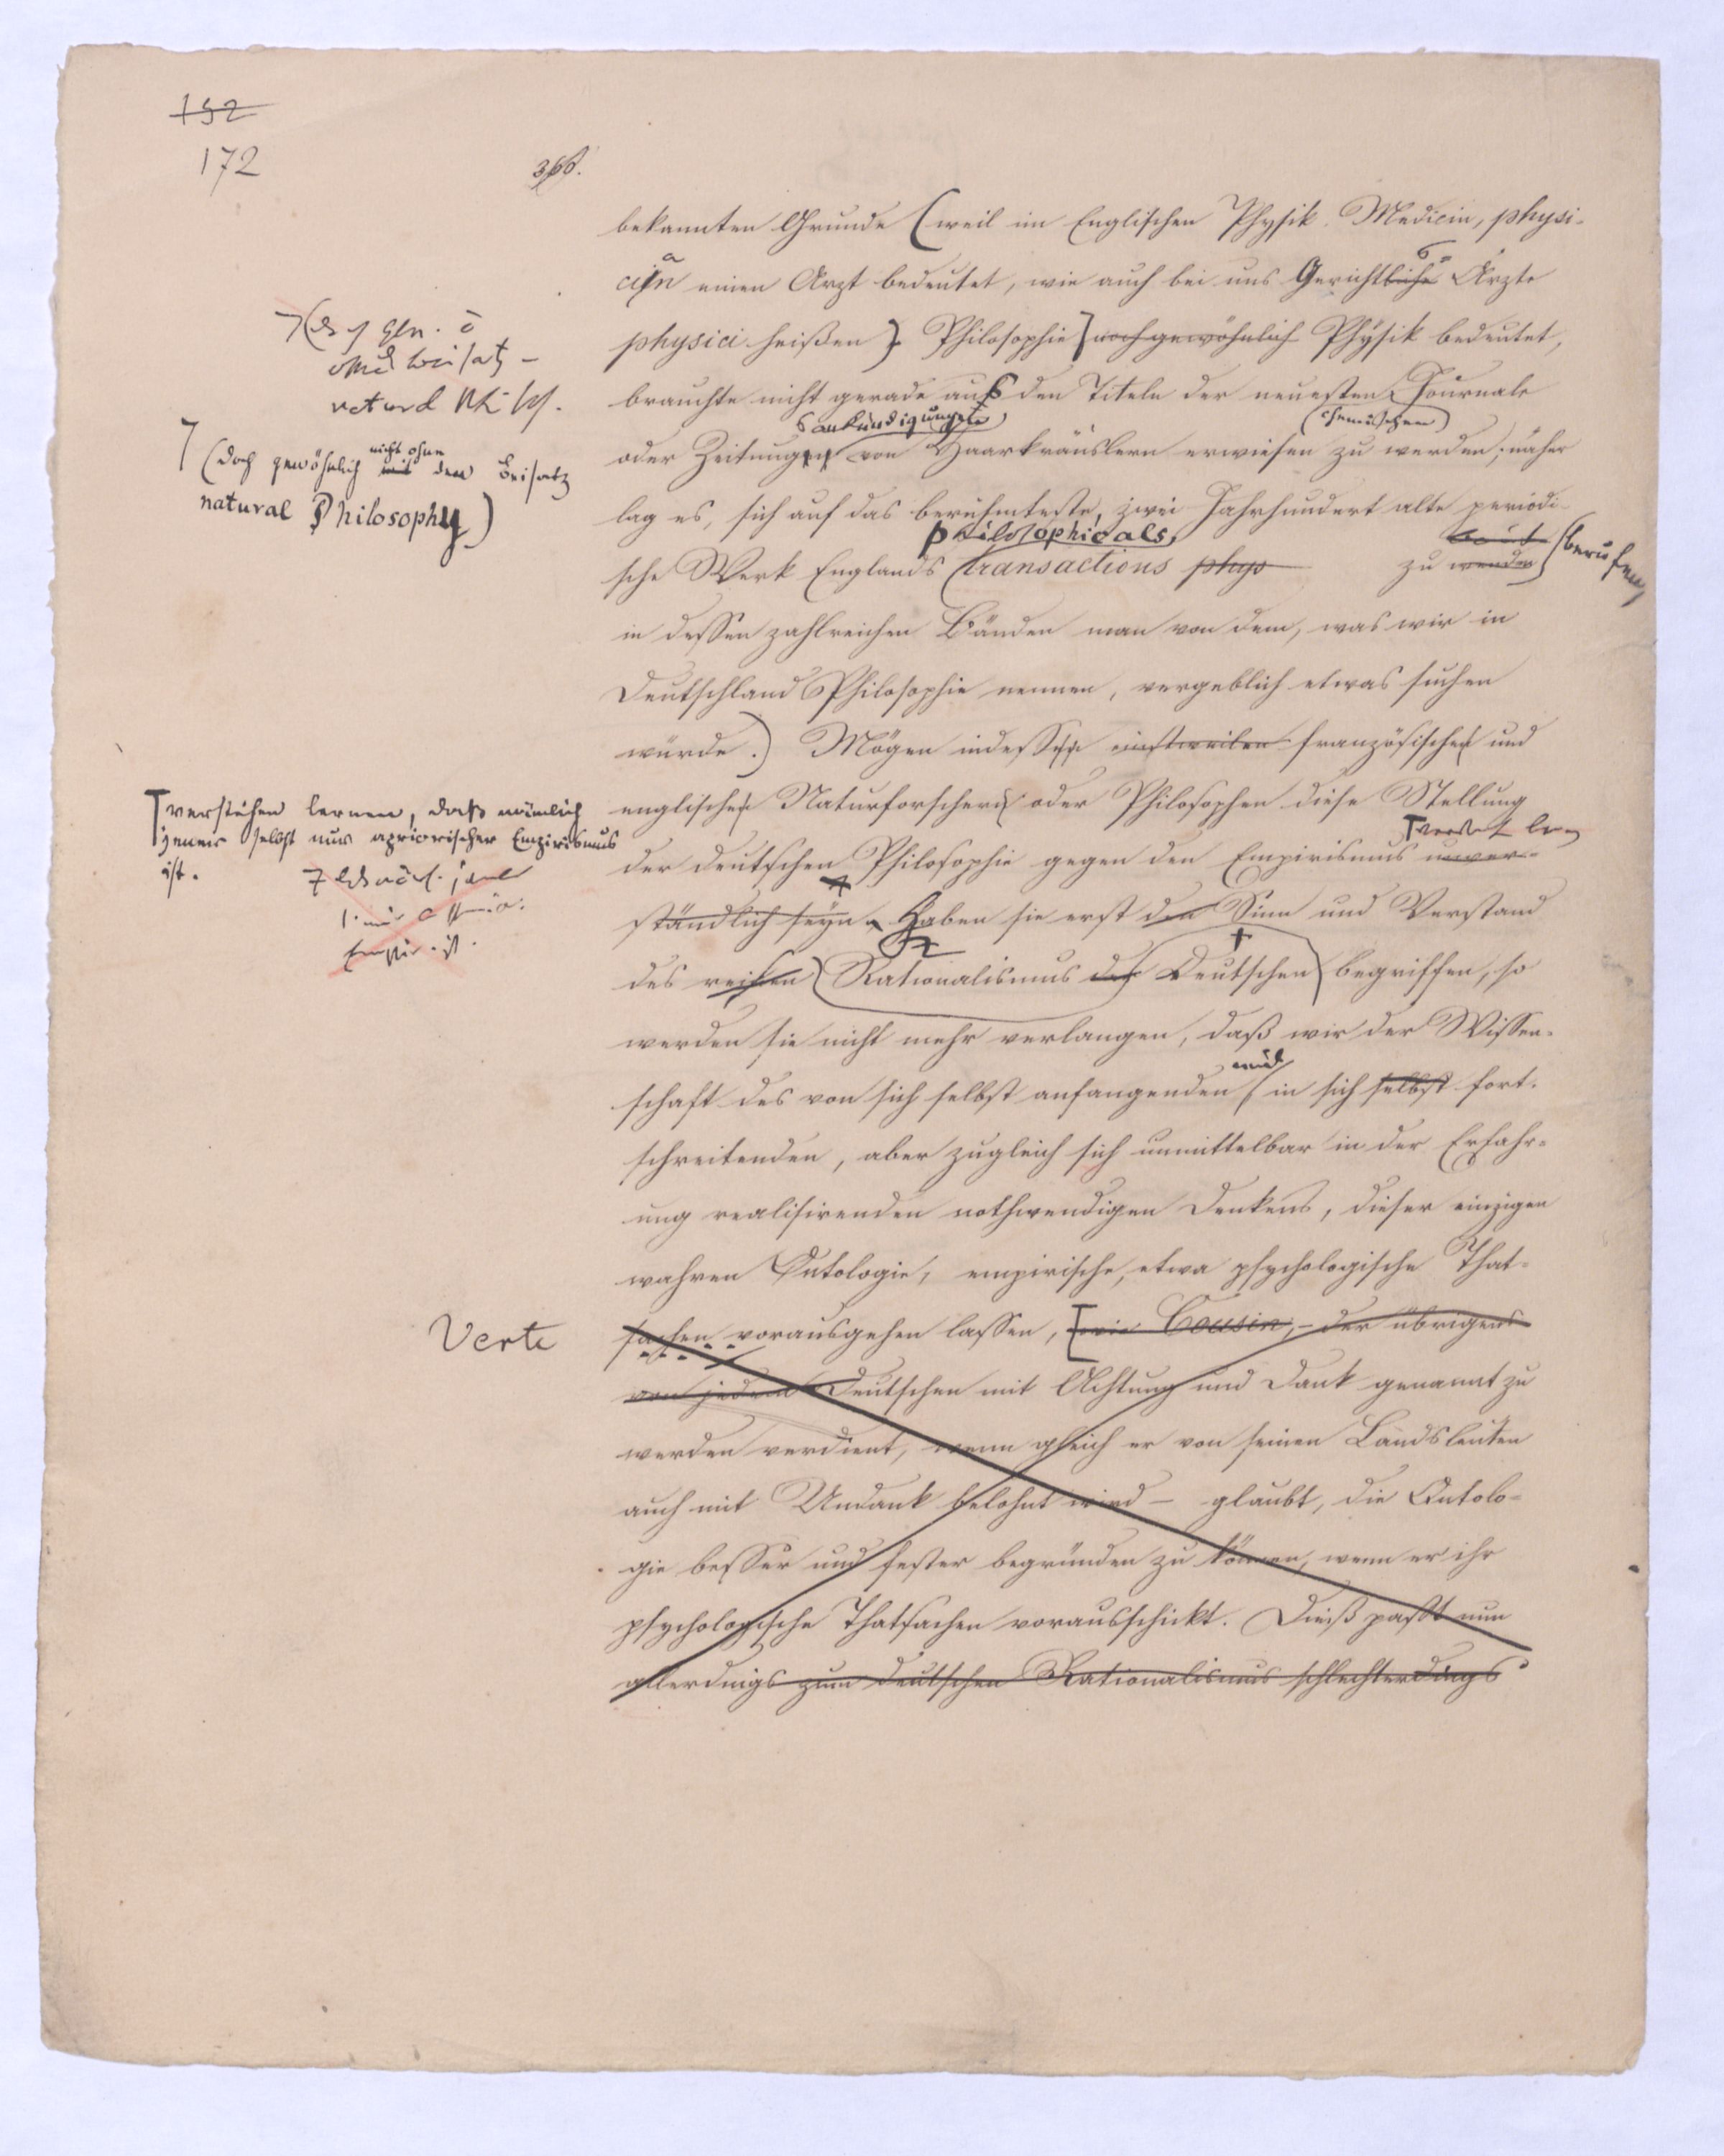 152
172
bekannten Grunde (weil im Englischen Physik Medicin, physi-
cian einen Arzt bedeutet, wie auch bei uns Gerichtliche Ärzte
physici heißen) Philosophie noch gewöhnlich Physik bedeutet,
(doch gewöhnlich mit nicht ohne den Beisatz
natural Philosophy)
brauchte nicht gerade aus den Titeln der neuesten Journale
ankündigungen (chemischen)
oder Zeitungen von Haarkräuslern erwiesen zu werden; näher
lag es, sich auf das berühmteste, zwei Jahrhundert alte periodi-
philosophicals
sche Werk Englands transactions phys zu wenden berufen,
in dessen zahlreichen Bänden man von dem, was wir in
Deutschland Philosophie nennen, vergeblich etwas suchen
würde.) Mögen indessen einstweilen französische und
englische Naturforscher oder Philosophen diese Stellung
der deutschen Philosophie gegen den Empirismus unver-
verstehen lernen, daß nämlich
jener selbst nur apriorischer Empirismus
ist.
ständlich seyn. Haben sie erst den Sinn und Verstand
des reifen Rationalismus der Deutschen begriffen, so
werden sie nicht mehr verlangen, daß wir der Wissen-
und
schaft des von sich selbst anfangenden in sich selbst fort-
schreitenden, aber zugleich sich unmittelbar in der Erfahr-
ung realisirenden nothwendigen Denkens, dieser einzigen
wahren Ontologie, empirische, etwa psychologische That-
Verte
sachen vorausgehen lassen, wie Cousin, - der übrigens
von jedem Deutschen mit Achtung und Dank genannt zu
werden verdient, wenn gleich er von seinen Landsleuten
auch mit Undank belohnt wird - glaubt, die Ontolo-
gie besser und fester begründen zu können, wenn er ihr
psychologische Thatsachen vorausschickt. Dieß paßt nun
allerdings zum deutschen Rationalismus schlechterdings